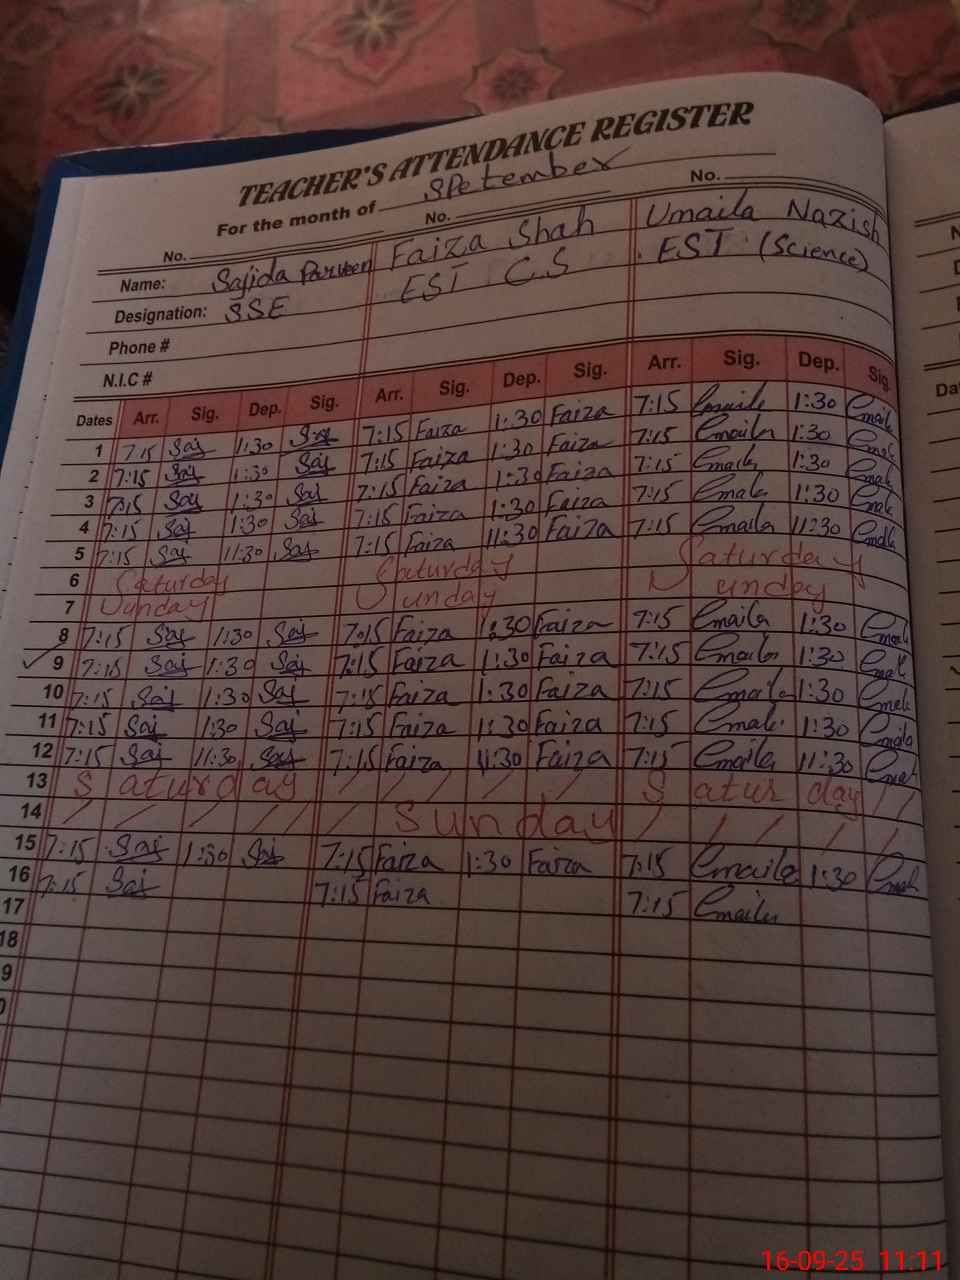 TEACHER'S ATTENDANCE REGISTER
For the month of SPetember
No. No. No.
Name: Sajida Parveen Faiza Shah Umaila Nazish
Designation: SSE EST C.S EST (Science)
Phone #
N.I.C #
Dates Arr. Sig. Dep. Sig. Arr. Sig. Dep. Sig. Arr. Sig. Dep. Sig.
1 7:15 Saj 1:30 Saj 7:15 Faiza 1:30 Faiza 7:15 Emaila 1:30 Emaila
2 7:15 Saj 1:30 Saj 7:15 Faiza 1:30 Faiza 7:15 Emaila 1:30
3 7:15 Saj 1:30 Saj 7:15 Faiza 1:30 Faiza 7:15 Emaila 1:30
4 7:15 Saj 1:30 Saj 7:15 Faiza 1:30 Faiza 7:15 1:30
5 7:15 Saj 11:30 Saj 7:15 Faiza 11:30 Faiza 7:15 Emaila 11:30
6 Saturday Saturday Saturday
7 Sunday Sunday Sunday
8 7:15 Saj 1:30 Saj 7:15 Faiza 1:30 Faiza 7:15 Emaila 1:30
9 7:15 Saj 1:30 Saj 7:15 Faiza 1:30 Faiza 7:15 Emaila 1:30
10 7:15 Saj 1:30 Saj 7:15 Faiza 1:30 Faiza 7:15 Emaila 1:30
11 7:15 Saj 1:30 Saj 7:15 Faiza 1:30 Faiza 7:15 1:30 Emaila
12 7:15 Saj 11:30 Saj 7:15 Faiza 11:30 Faiza 7:15 Emaila 11:30
13 Saturday / / / / / Saturday / /
14 / / / / / / Sunday / / / / / /
15 7:15 Saj 1:30 Saj 7:15 Faiza 1:30 Faiza 7:15 Emaila 1:30
16 7:15 Saj 7:15 Faiza 7:15 Emaila
17
18
9
0
16-09-25 11:11